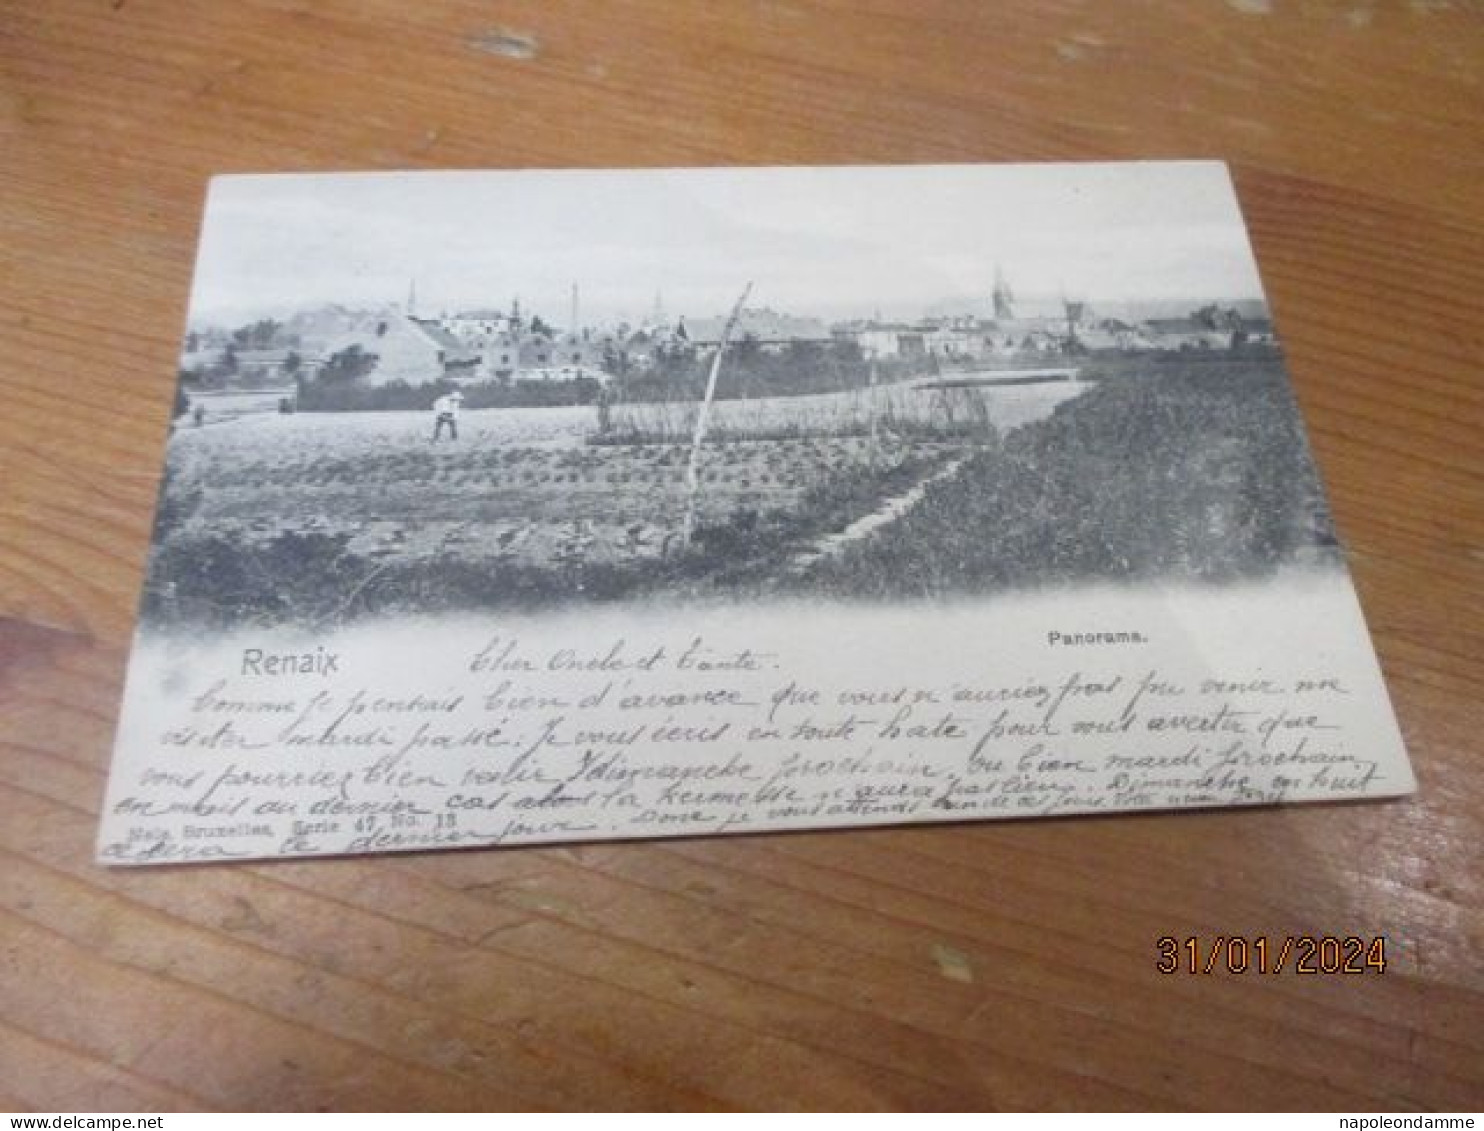 Renaix
Panorama.
Cher Oncle et Tante.
Comme je pensais bien d'avance que vous n'auriez pas pu venir me
visiter mardi passé. Je vous écris en toute hate pour vous avertir que
vous pourriez bien venir dimanche prochain, ou bien mardi prochain,
en mais au dernier cas alors la kermesse n'aura pas lieu. Dimanche en huit
Nels, Bruxelles, Serie 47 No. 13
sera le dernier jour. Donc je vous attends un de ces jours
31/01/2024
napoleondamme